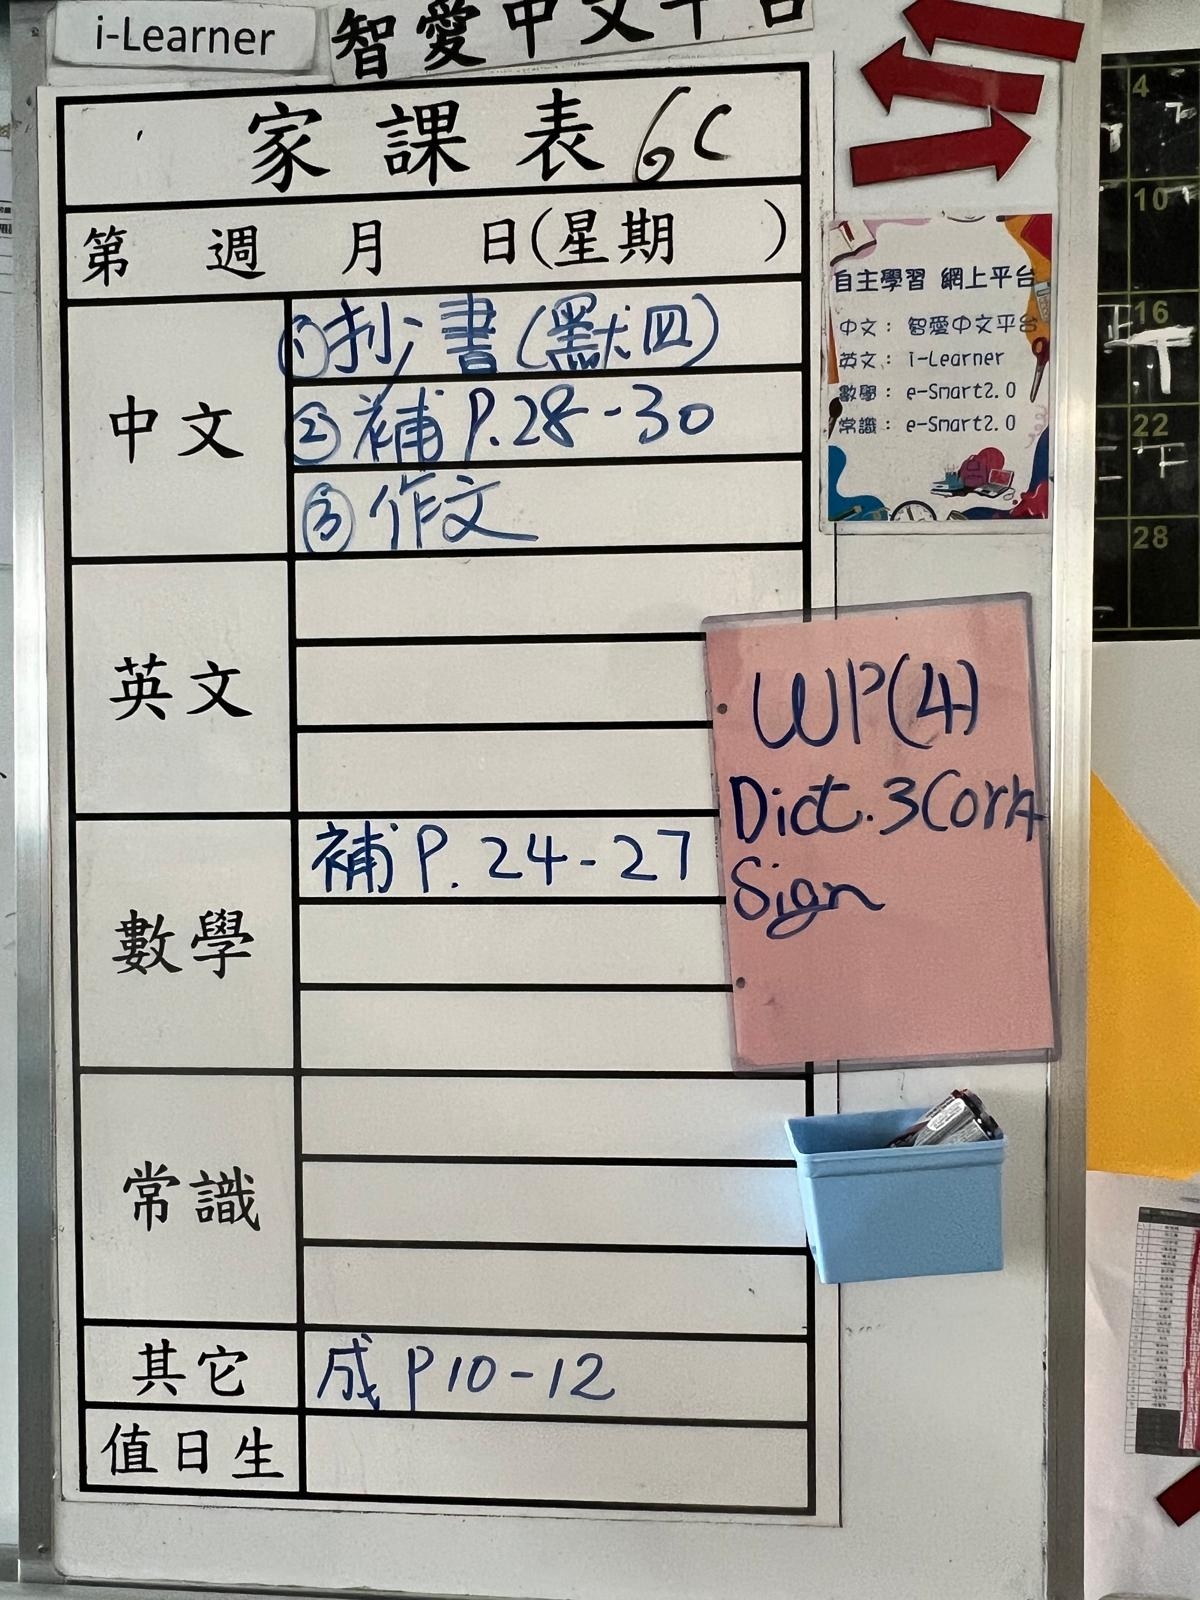 i-Learner
智愛中文平台
家課表 6C
第 週 月 日(星期 )
中文
①抄書(默四)
②補 P.28-30
③作文
英文
數學
補 P. 24-27
常識
其它
成 P10-12
值日生
自主學習 網上平台
中文: 智愛中文平台
英文: i-Learner
數學: e-Smart2.0
常識: e-Smart2.0
WP(4)
Dict.3Corr
Sign
4
10
16
22
28